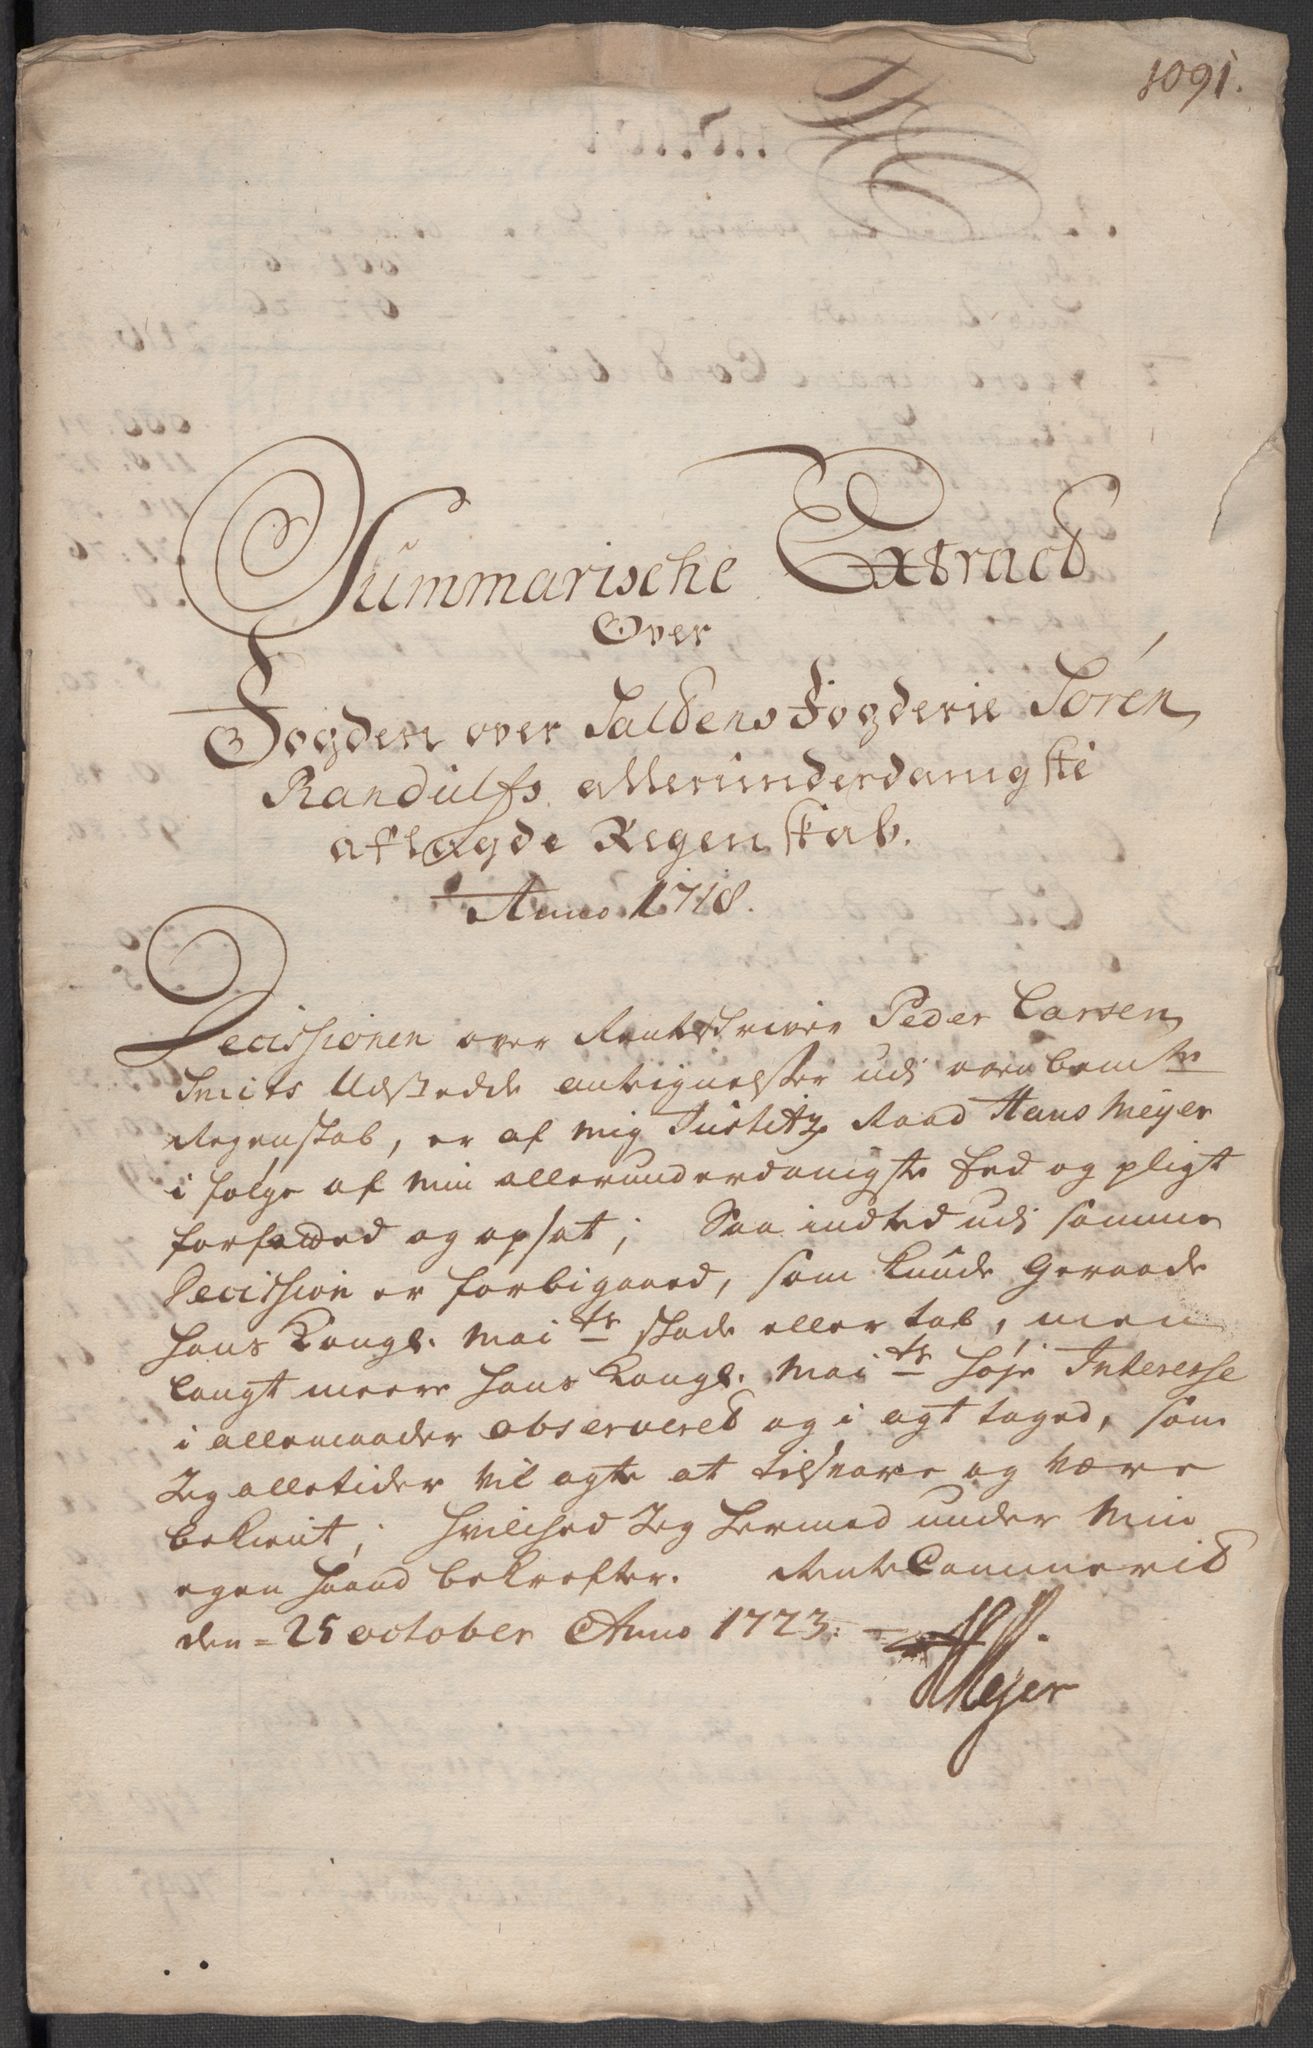 1091.
Summarische Extract
Over
Fogden over Saltens Fogderie Sören
Randulfs allerunderdanigste
aflagde Regenskab.
Anno 1718.
Decissionen over Rentskriver Peder Larsen
Smits Udstedde antegnelser udi ovenbemte
Regenskab, er af mig Justitz Raad Hans Meyer
i følge af min allerunderdanigste Eed og pligt
forfatted og opsat; Saa indted udi samme
Decission er forbigaaed, som kunde geraade
Hans Kongl. Maits skade eller tab, men
langt meere Hans Kongl. Maits høje Interesse
i allemaader observeret og i agt taged, som
Jeg alletider vil agte at tilsvare og være
bekient; hvilched Jeg hermed under min
egen haand bekrefter. RenteCammerit
den 25 october Anno 1723.
H Meyer